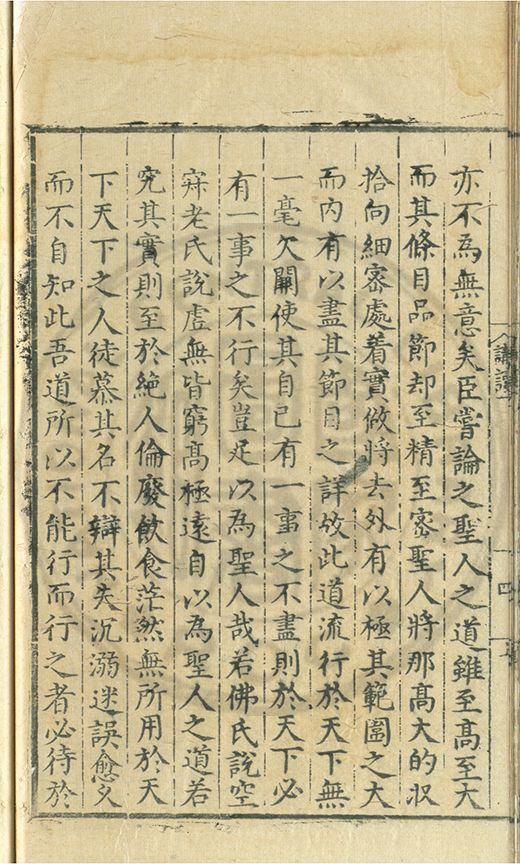 亦不爲無意矣臣嘗論之聖人之道雖至髙至大
而其條目品節却至精至密聖人將那髙大的収
拾向細密處着實做將去外有以極其範圍之大
而內有以盡其節目之詳故此道流行於天下無
一毫欠闕使其自已有一事之不盡則於天下必
有一事之不行矣豈足以為聖人哉若佛氏說空
寂老氏說虛無皆窮髙極遠自以為聖人之道若
究其實則至於絶人倫廢飲食茫然無所用於天
下天下之人徒慕其名不辯其失沉溺迷誤愈久
而不自知此吾道所以不能行而行之者必待於
四